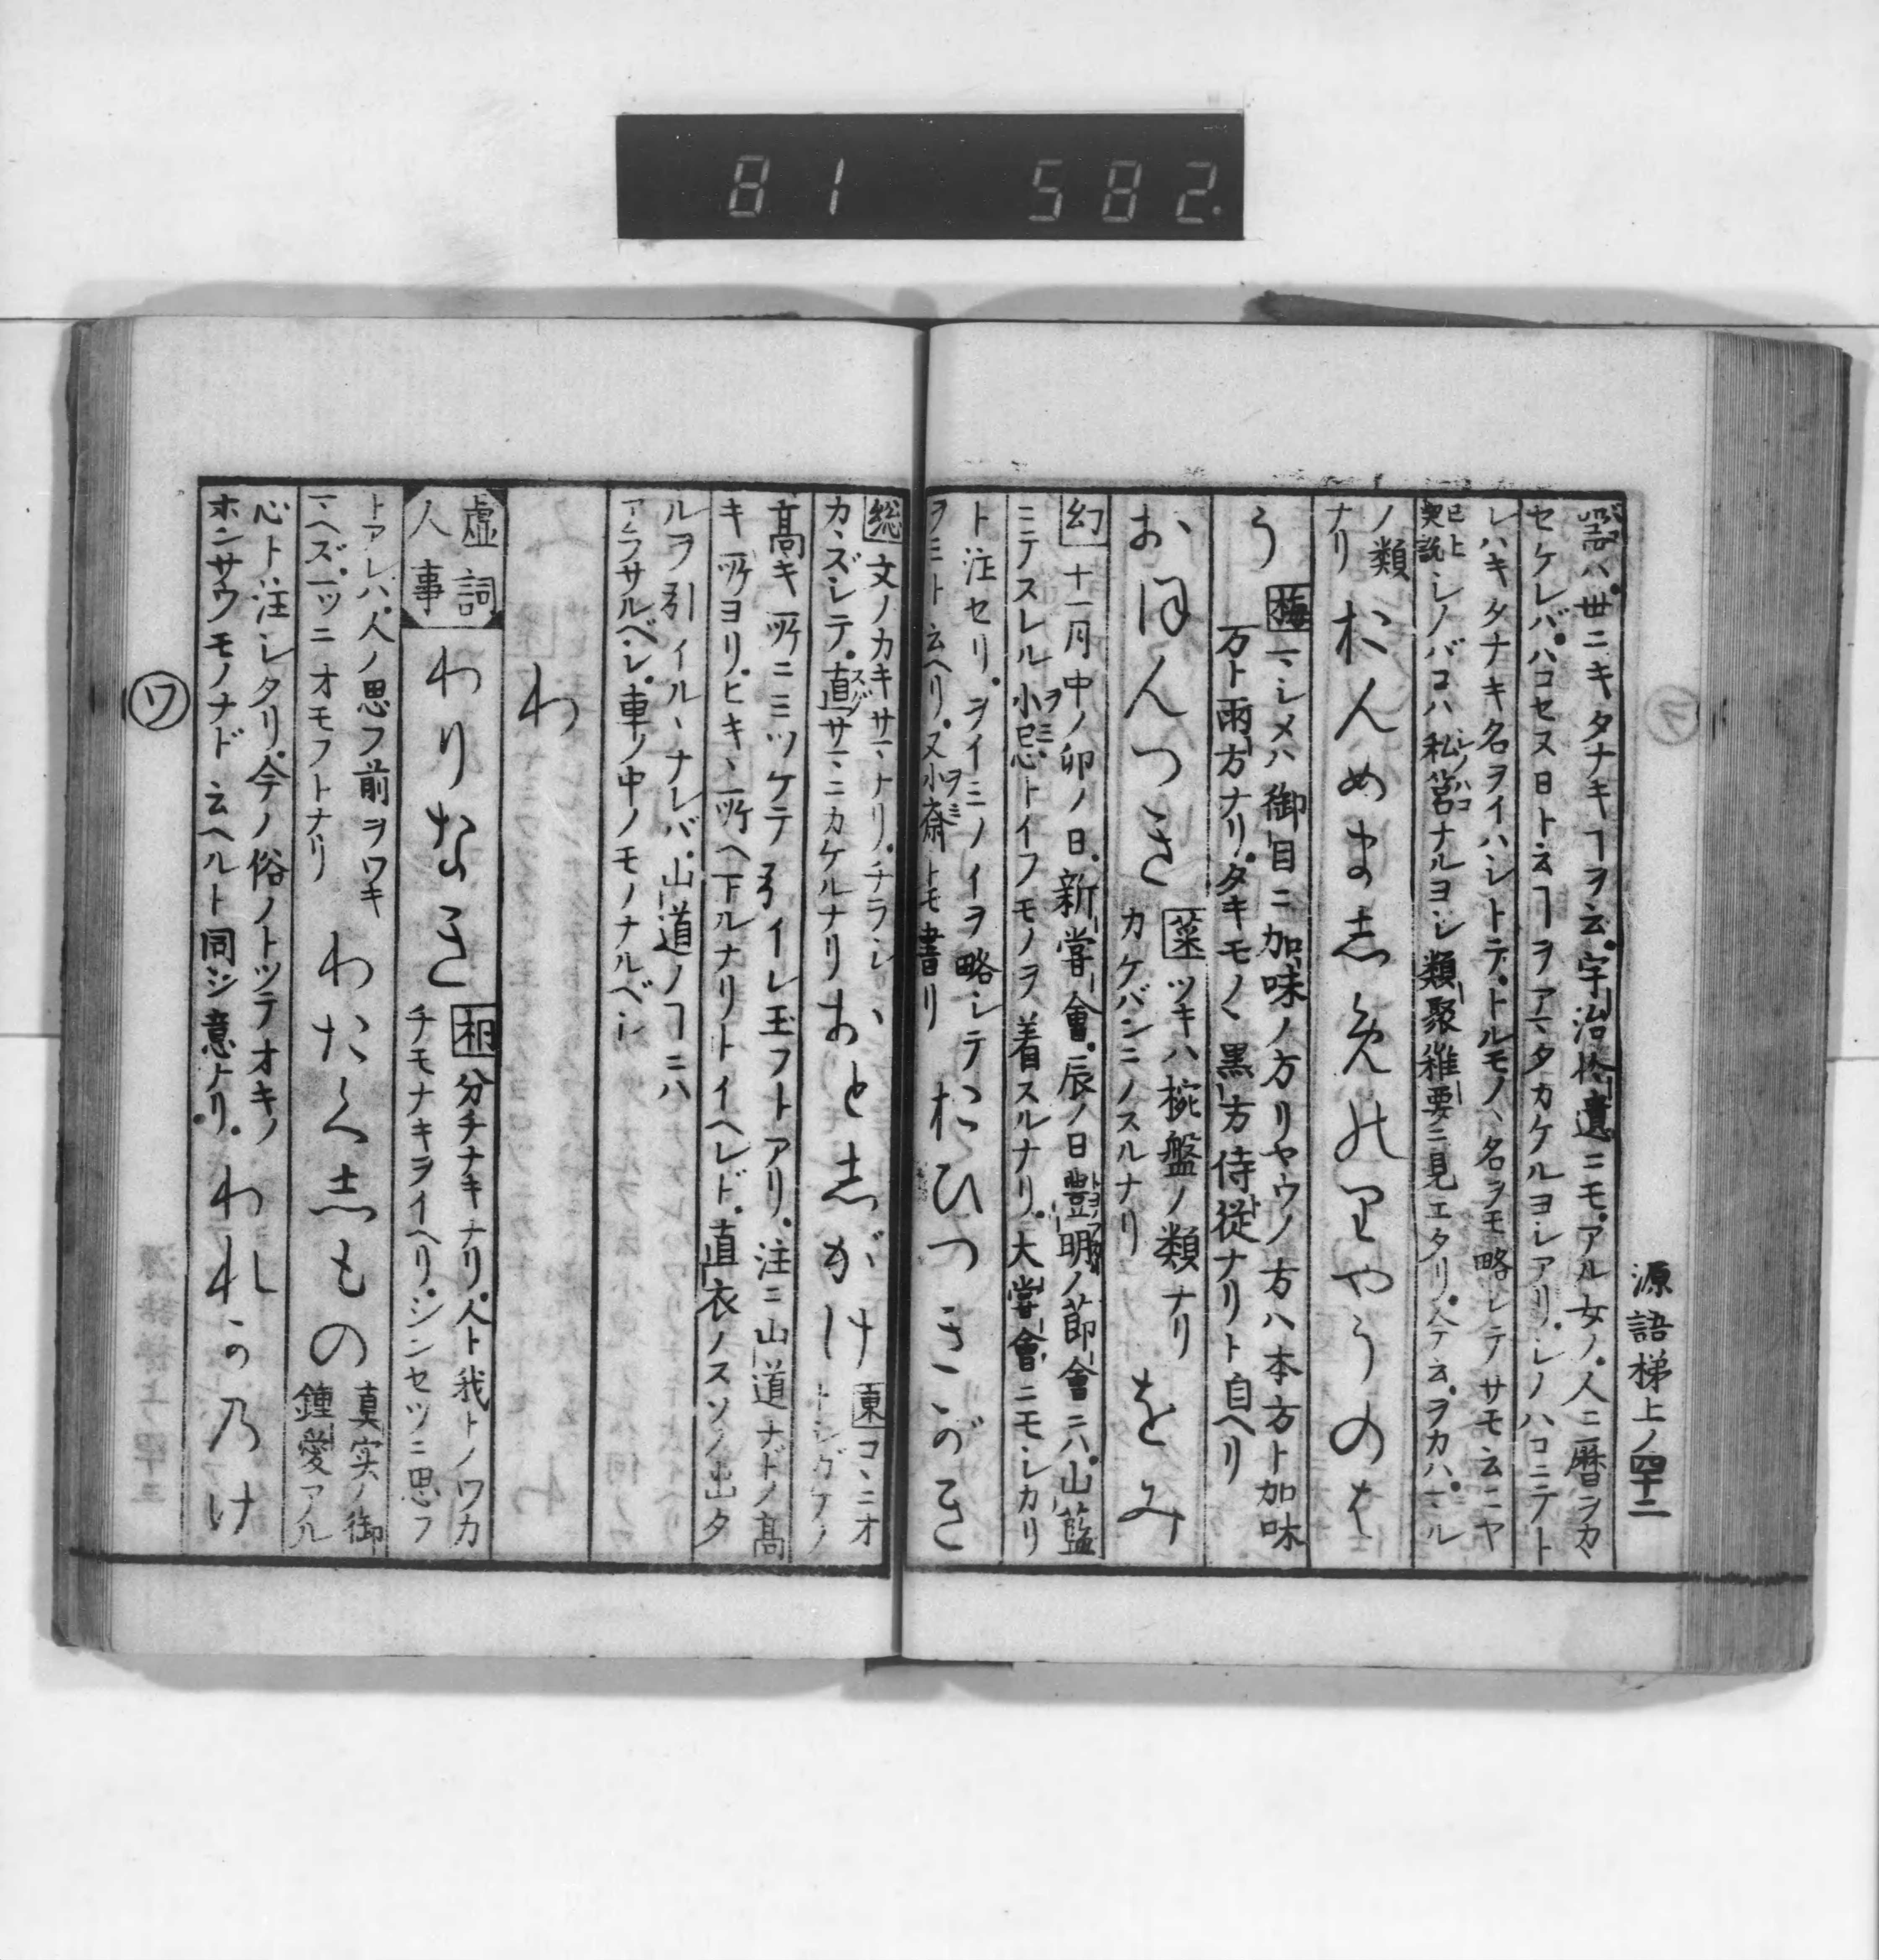 81 582.
源語梯上ノ四十二
器ハ世ニキタナキヿヲ云宇治拾遺ニモアル女ノ人ニ暦ヲカヽ
セケレバハコセス日ト云ヿヲアマタカケルヨシアリシノハコニテト
レハキタナキ名ヲイハシトテトルモノヽ名ヲモ略シテサモ云ニヤ
已上契説シノバコハ私筥ナルヨシ類聚雜要ニ見エタリ
シノハコ
ノ類ナリ
おんめましあはれ
梅
マシメハ御目ニ加味ノ方リヤウノ方ハ本方ト加味
万ト兩方ナリタキモノヽ黒方侍従ナリト自ヘリ
おほんつき
ツキハ椀盤ノ類ナリ
カケバンニノスルナリ
をみ
幻
十一月中ノ卯ノ日新嘗會辰ノ日豐明ノ節會ニハ山藍
ニテスレル小忌トイフモノヲ着スルナリ大嘗會ニモシカリ
ヲミ
ト注セリヲイミノイヲ略シテ
ヲミト云ヘリ又小斎トモ書リ
ヲミ
おひつきがき
総
文ノカキサマナリチラシ
カヽズシテ直サマニカケルナリ
スグ
おとしがけ
東
コヽニオ
トシガケノ
高キ所ニミツケテ引イレ玉フトアリ注ニ山道ナドノ高
キ所ヨリヒキヽ所ヘ下ルナリトイヘレド直衣ノスソノ出タ
ルヲ引イルヽナレバ山道ノヿニハ
アラサルベシ車ノ中ノモノナルベシ
わ
虚詞
人事
わりなき
桐
分チナキナリ人ト我トノワカ
チモナキヲイヘリシンセツニ思フ
トアレハ人ノ思フ前ヲワキ
マヘズ一ツニオモフトナリ
わたくしもの
真実ノ御
鍾愛アル
心ト注シタリ今ノ俗ノトツテオキノ
ホンサウモノナド云ヘルト同シ意ナリ
われかのけ
ワ